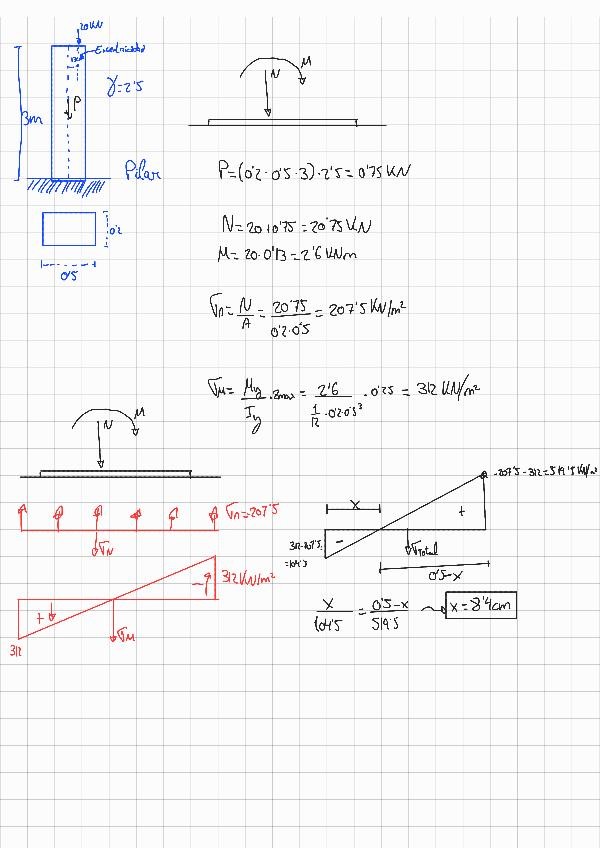 20KN
Excentricidad
γ=2'5
P
3m
Pilar
0'2
0'5
M
N
P=(0'2·0'5·3)·2'5=0'75KN
N=20+0'75=20'75KN
M=20·0'13=2'6KNm
σn=N/A=20'75/0'2·0'5=207'5KN/m²
σM=My/Iy·zmax=2'6/(1/12·0'2·0'5³)·0'25=312KN/m²
M
N
σn=-207'5
σN
- 312KN/m²
+
σM
312
-207'5-312=519'5KN/m²
x
+
-
312-207'5=
=104'5
σTotal
0'5-x
x/104'5=0'5-x/519'5
x=8'4cm